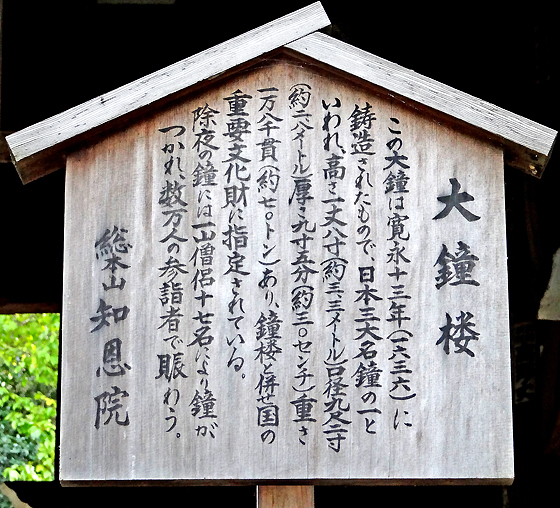 大鐘楼
この大鐘は寛永十三年(一六三六)に
鋳造されたもので、日本三大名鐘の一と
いわれ、高さ一丈八寸(約三、三メートル)口径九尺二寸
(約二、八メートル)厚さ九寸五分(約三〇センチ)重さ
一万八千貫(約七〇トン)あり、鐘楼と併せ国の
重要文化財に指定されている。
除夜の鐘には一山僧侶十七名により鐘が
つかれ、数万人の参詣者で賑わう。
総本山 知恩院